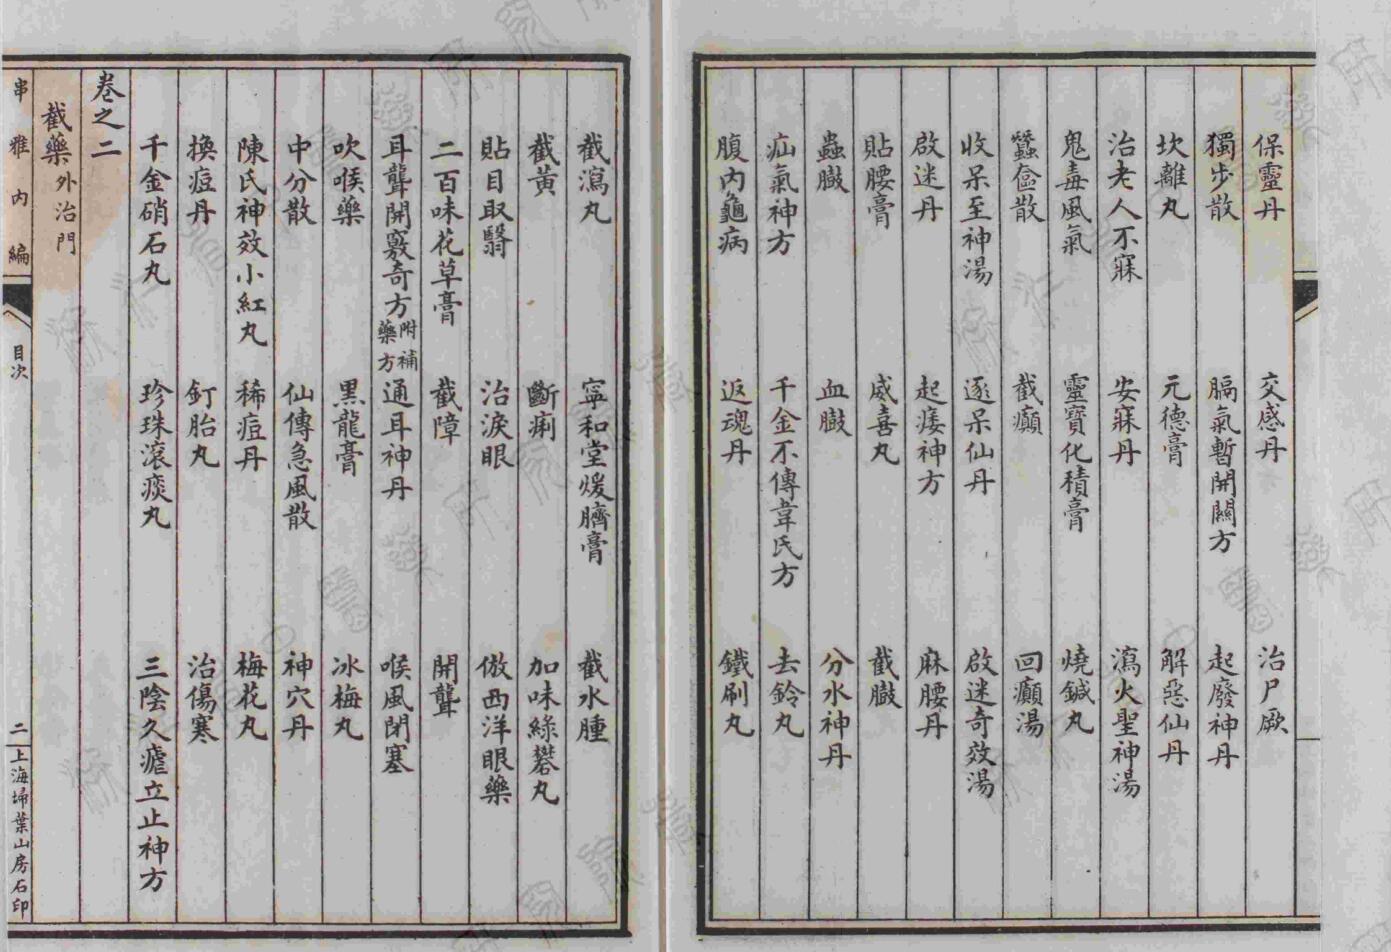 保靈丹 交感丹 治尸厥
獨步散 膈氣暫開關方 起廢神丹
坎離丸 元德膏 解惡仙丹
治老人不寐 安寐丹 瀉火聖神湯
鬼毒風氣 靈寶化積膏 燒鍼丸
蠶僉散 截癲 回癲湯
收呆至神湯 逐呆仙丹 啟迷奇效湯
啟迷丹 起痿神方 麻腰丹
貼腰膏 威喜丸 截臌
蟲臌 血臌 分水神丹
疝氣神方 千金不傳韋氏方 去鈴丸
腹內龜病 返魂丹 鐵刷丸
截瀉丸 寧和堂煖臍膏 截水腫
截黃 斷痢 加味綠礬丸
貼目取翳 治淚眼 倣西洋眼藥
二百味花草膏 截障 開聾
耳聾開竅奇方 附補藥方 通耳神丹 喉風閉塞
吹喉藥 黑龍膏 冰梅丸
中分散 仙傳急風散 神穴丹
陳氏神效小紅丸 稀痘丹 梅花丸
換痘丹 釘胎丸 治傷寒
千金硝石丸 珍珠滾痰丸 三陰久瘧立止神方
卷之二
截藥外治門
串雅內編 目次 二 上海埽葉山房石印